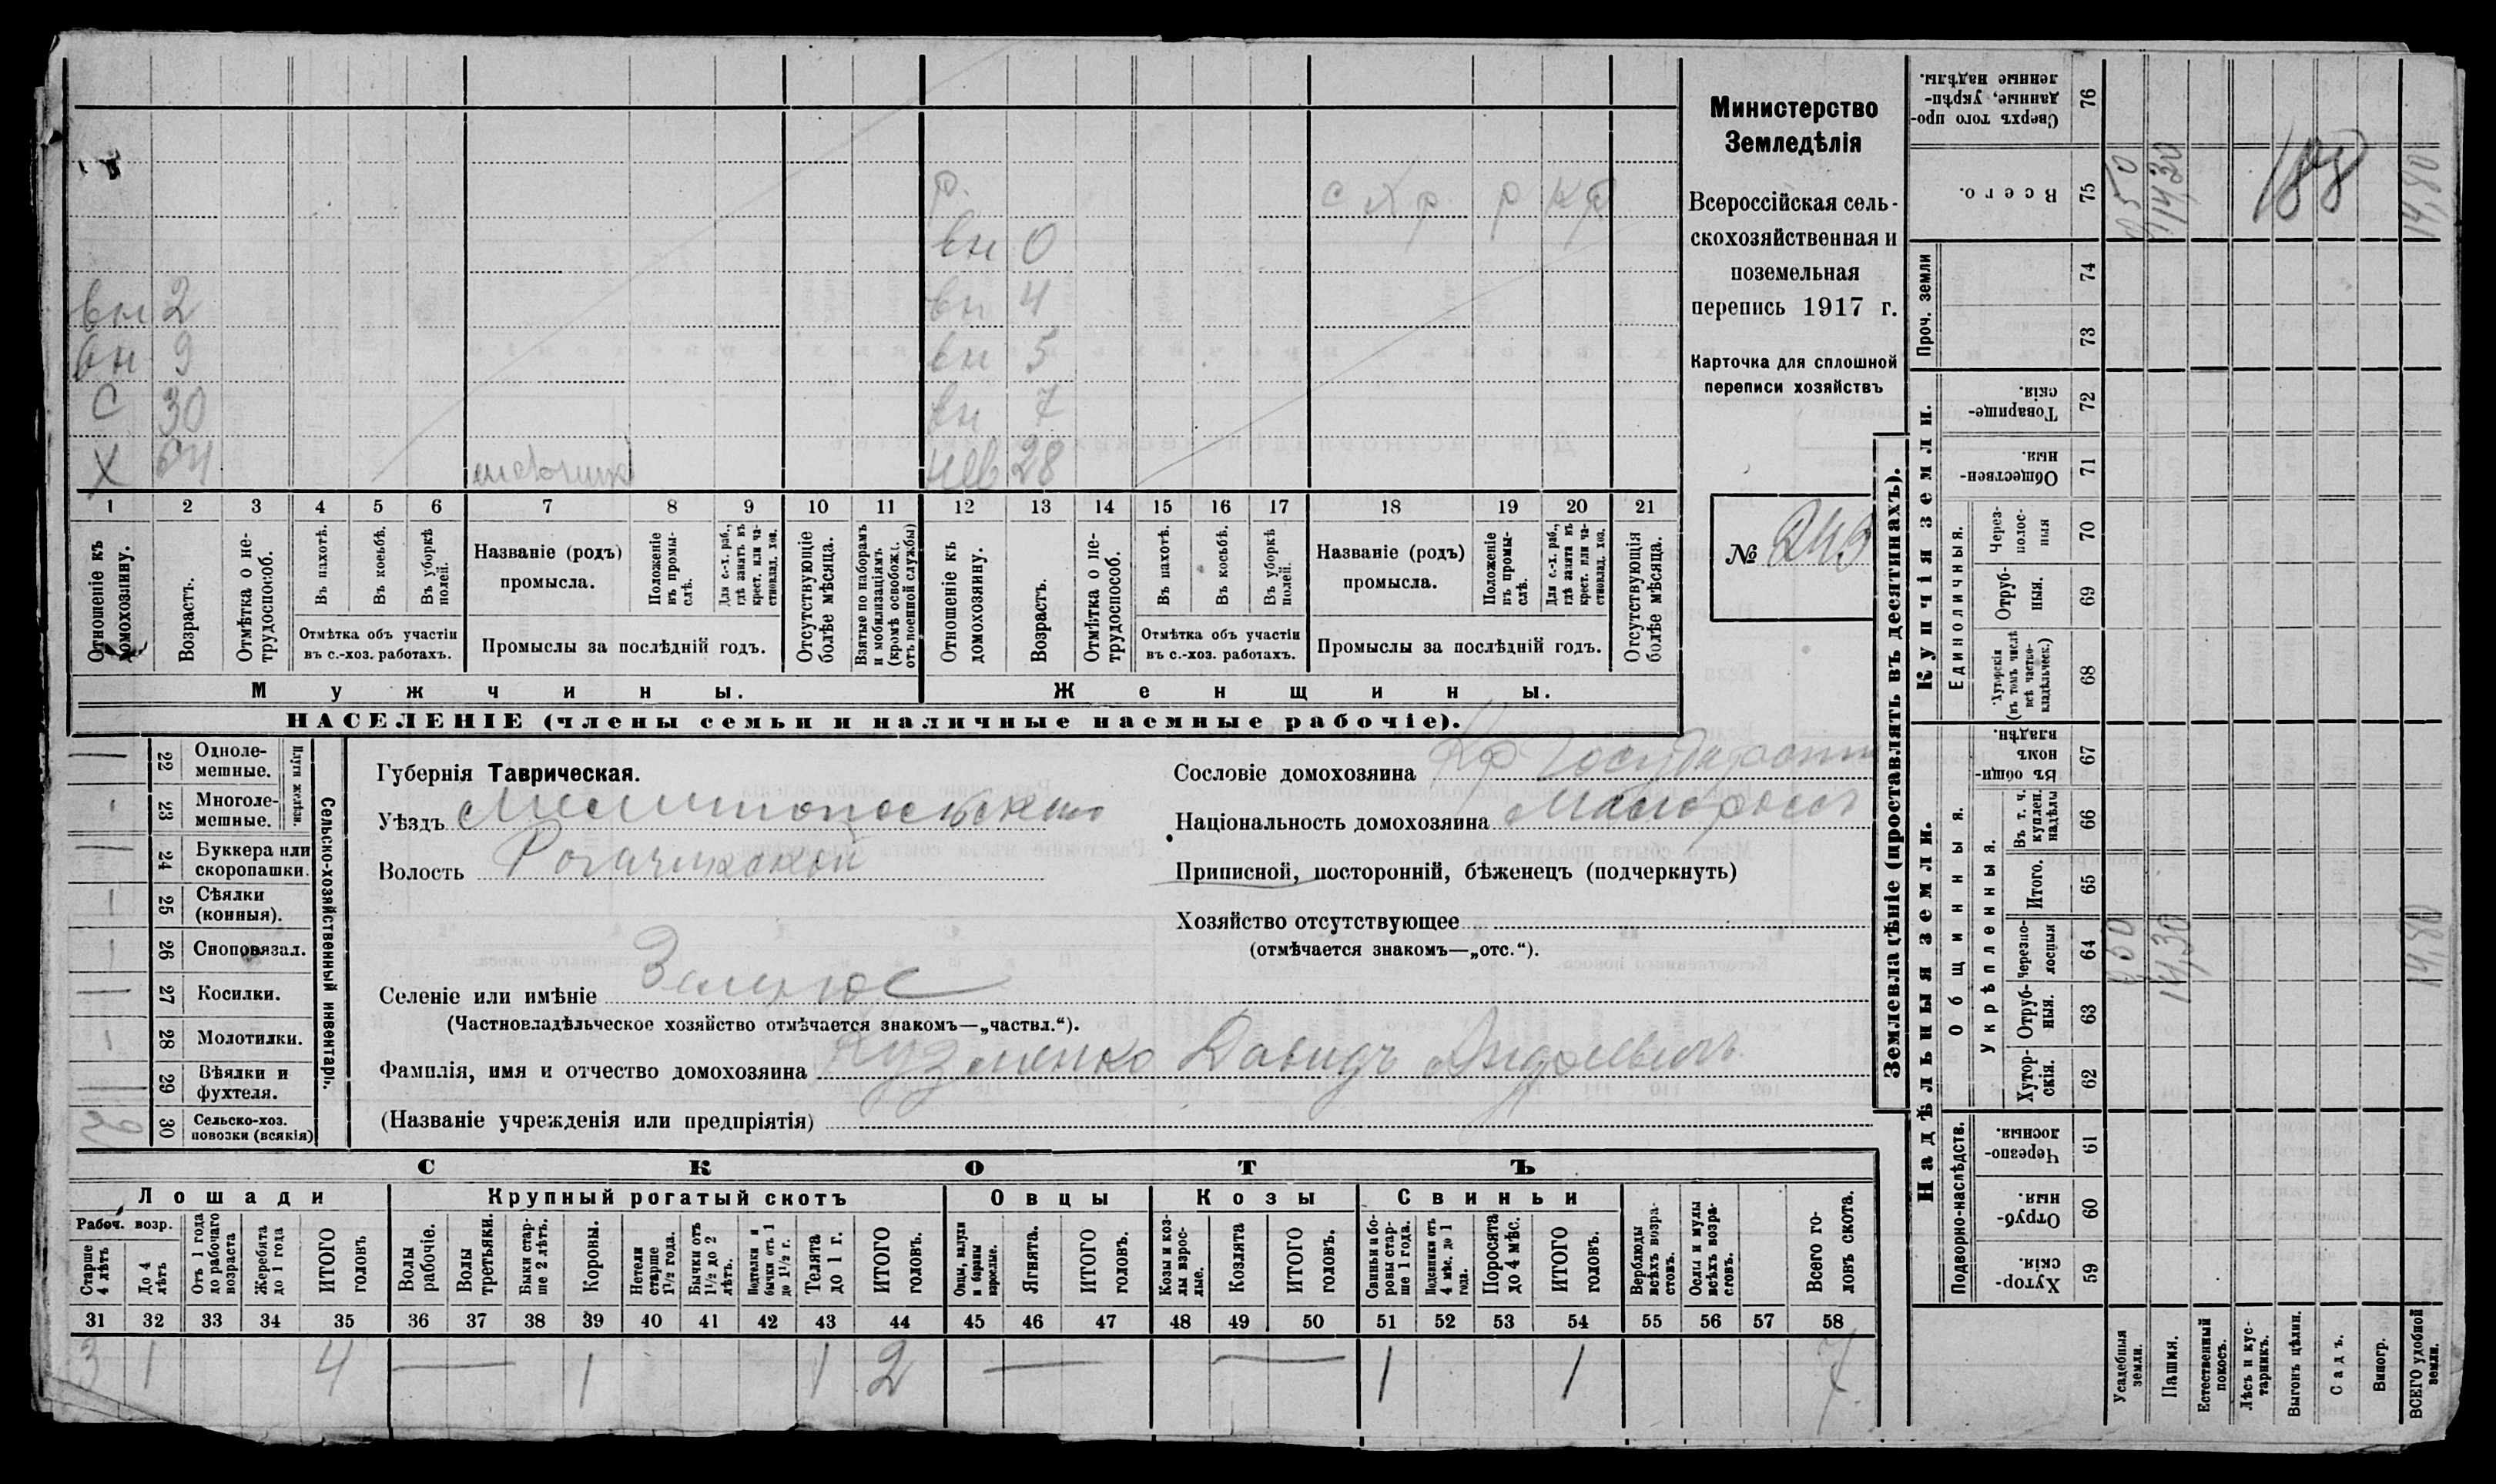 Министерство
Земледѣлія
Всероссійская сель-
скохозяйственная и
поземельная
перепись 1917 г.
Карточка для сплошной
переписи хозяйствъ
№ 249
р.
с х р р кр
вн 0
вн 2 вн 4
вн 9 вн 5
С 30 вн 7
Х 64 нев 28
1 2 3 4 5 6 7 8 9 10 11 12 13 14 15 16 17 18 19 20 21
Отношеніе къ домохозяину.
Возрастъ.
Отмѣтка о не-трудоспособ.
Въ пахотѣ.
Въ косьбѣ.
Въ уборкѣ полей.
Отмѣтка объ участіи
въ с.-хоз. работахъ.
Названіе (родъ)
промысла.
Положеніе въ промы-слѣ.
Для с.-х. раб., гдѣ занятъ въ крест. или ча-стновлад. хоз.
Промыслы за послѣдній годъ.
Отсутствующіе болѣе мѣсяца.
Взятые по наборамъ и мобилизаціямъ (кромѣ освобожд. отъ военной службы)
Отношеніе къ домохозяину.
Возрастъ.
Отмѣтка о не-трудоспособ.
Въ пахотѣ.
Въ косьбѣ.
Въ уборкѣ полей.
Отмѣтка объ участіи
въ с.-хоз. работахъ.
Названіе (родъ)
промысла.
Положеніе въ промы-слѣ.
Для с.-х. раб., гдѣ занята въ крест. или ча-стновлад. хоз.
Промыслы за послѣдній годъ.
Отсутствующія болѣе мѣсяца.
Мужчины. Женщины.
НАСЕЛЕНІЕ (члены семьи и наличные наемные рабочіе).
Сельско-хозяйственный инвентарь.
Плуги желѣзн.
22 Одноле-мешные.
23 Многоле-мешные.
24 Буккера или скоропашки.
25 Сѣялки (конныя).
26 Сноповязал.
27 Косилки.
28 Молотилки.
29 Вѣялки и фухтеля.
30 Сельско-хоз. повозки (всякія)
Губернія Таврическая.
Уѣздъ Мелитопольскаго
Волость Рогачикской
Сословіе домохозяина Кр Государств
Національность домохозяина Малоросъ
Приписной, посторонній, бѣженецъ (подчеркнуть)
Хозяйство отсутствующее
(отмѣчается знакомъ—„отс.“).
Селеніе или имѣніе
(Частновладѣльческое хозяйство отмѣчается знакомъ—„частвл.“).
Фамилія, имя и отчество домохозяина Кузменко Давидъ Андреевичъ
(Названіе учрежденія или предпріятія)
СКОТЪ
Лошади Крупный рогатый скотъ Овцы Козы Свиньи
Рабоч. возр.
Старше 4 лѣтъ
До 4 лѣтъ
Отъ 1 года до рабочаго возраста
Жеребята до 1 года
ИТОГО головъ
Волы рабочіе.
Волы третьяки.
Быки стар-ше 2 лѣтъ.
Коровы.
Нетели старше 1½ года.
Бычки отъ 1½ до 2 лѣтъ.
Подтелки и бычки отъ 1 до 1½ г.
Телята до 1 г.
ИТОГО головъ.
Овцы, валухи и бараны взрослые.
Ягнята.
ИТОГО головъ.
Козы и коз-лы взрос-лые.
Козлята
ИТОГО головъ.
Свиньи и бо-ровы стар-ше 1 года.
Подсвинки отъ 4 мѣс. до 1 года.
Поросята до 4 мѣс.
ИТОГО головъ.
Верблюды всѣхъ возра-стовъ.
Ослы и мулы всѣхъ возра-стовъ.
Всего го-ловъ скота.
31 32 33 34 35 36 37 38 39 40 41 42 43 44 45 46 47 48 49 50 51 52 53 54 55 56 57 58
3 1 4 — 1 1 2 — — 1 1 7
Землевладѣніе (проставлять въ десятинахъ).
Купчія земли.
Надѣльныя земли.
Сверхъ того про-данные, укрѣп-ленные надѣлы. 76
Всего. 75 0,50 14,30 14,80
188
Проч. земли 74
73
Товарище-скія. 72
Обществен-ныя. 71
Единоличныя.
Через-полос-ныя 70
Отруб-ныя. 69
Хуторскія (въ томъ числѣ всѣ частно-владѣльческ.) 68
Общинныя.
Въ общин-номъ владѣн. 67
Укрѣпленныя.
Въ т. ч. куплен. надѣлы 66
Итого. 65
Черезпо-лосныя 64 0,50 14,30 14,80
Отруб-ныя. 63
Хутор-скія. 62
Подворно-наслѣдств.
Черезпо-лосныя. 61
Отруб-ныя. 60
Хутор-скія. 59
Усадебныя земли.
Пашня.
Естественный покосъ.
Лѣсъ и кус-тарникъ.
Выгонъ цѣлин.
Садъ.
Виногр.
ВСЕГО удобной земли.